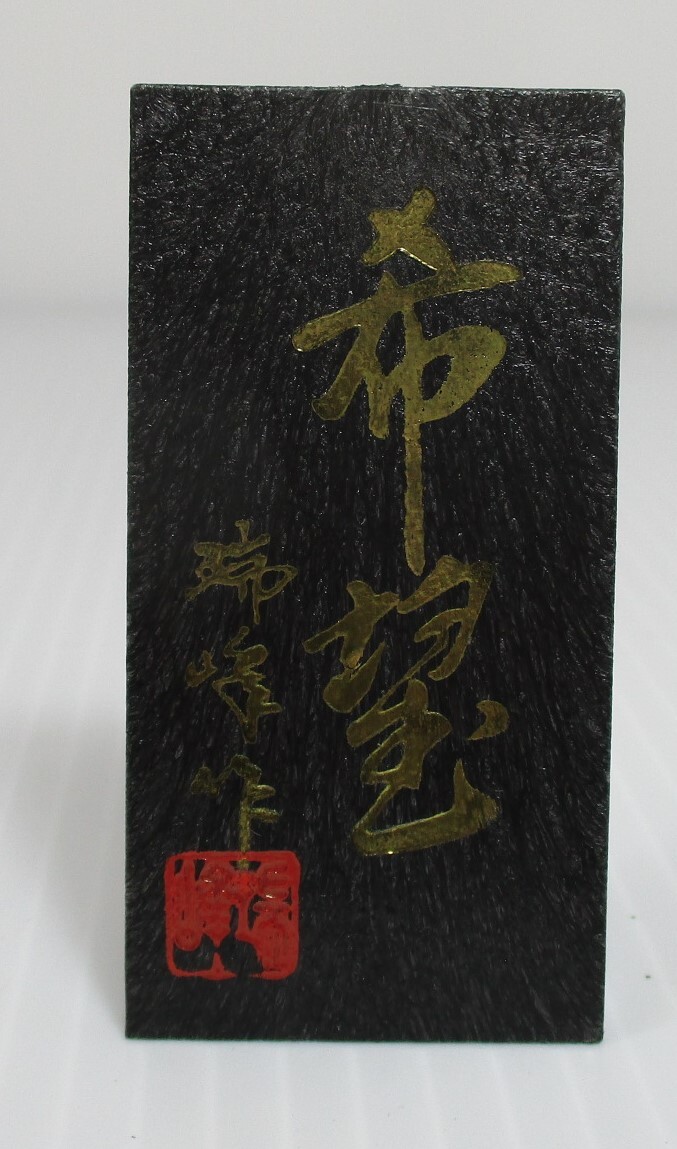 希望
瑞峰作